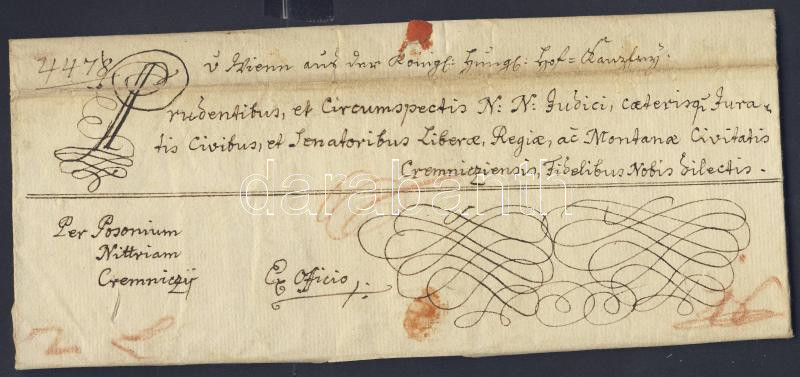 4478
v Wienn aus der Königl: Hungl: Hof=Kanzley.
Prudentibus, et Circumspectis N: N: Judici, cæterisq; Jura-
tis Civibus, et Senatoribus Liberæ, Regiæ, ac Montanæ Civitatis
Cremnicziensis, Fidelibus Nobis Dilectis.
darabanth
Per Posonium
Nittriam
Cremniczij
Ex Officio